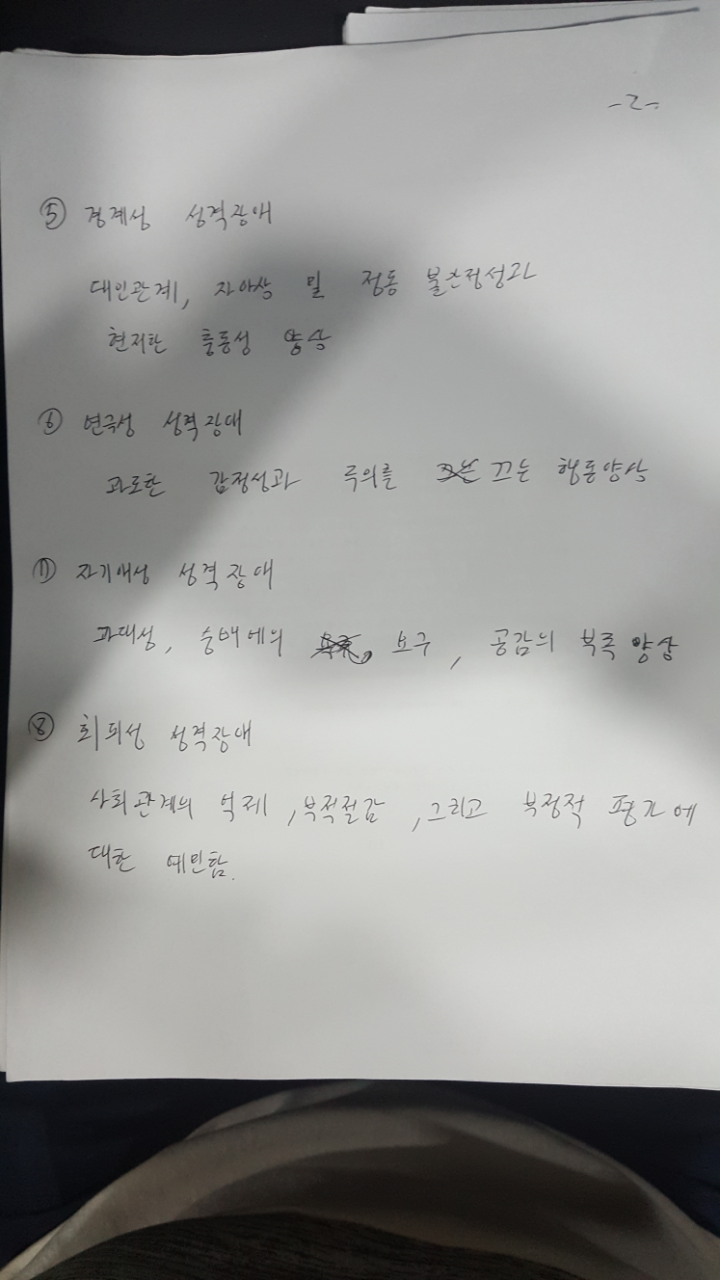 -2-
⑤ 경계성 성격장애
대인관계, 자아상 및 정동 불안정성과
현저한 충동성 양상
⑥ 연극성 성격장애
과도한 감정성과 주의를 끄는 행동양상
⑦ 자기애성 성격장애
과대성, 숭배에의 요구, 공감의 부족 양상
⑧ 회피성 성격장애
사회관계의 억제, 부적절감, 그리고 부정적 평가에
대한 예민함.